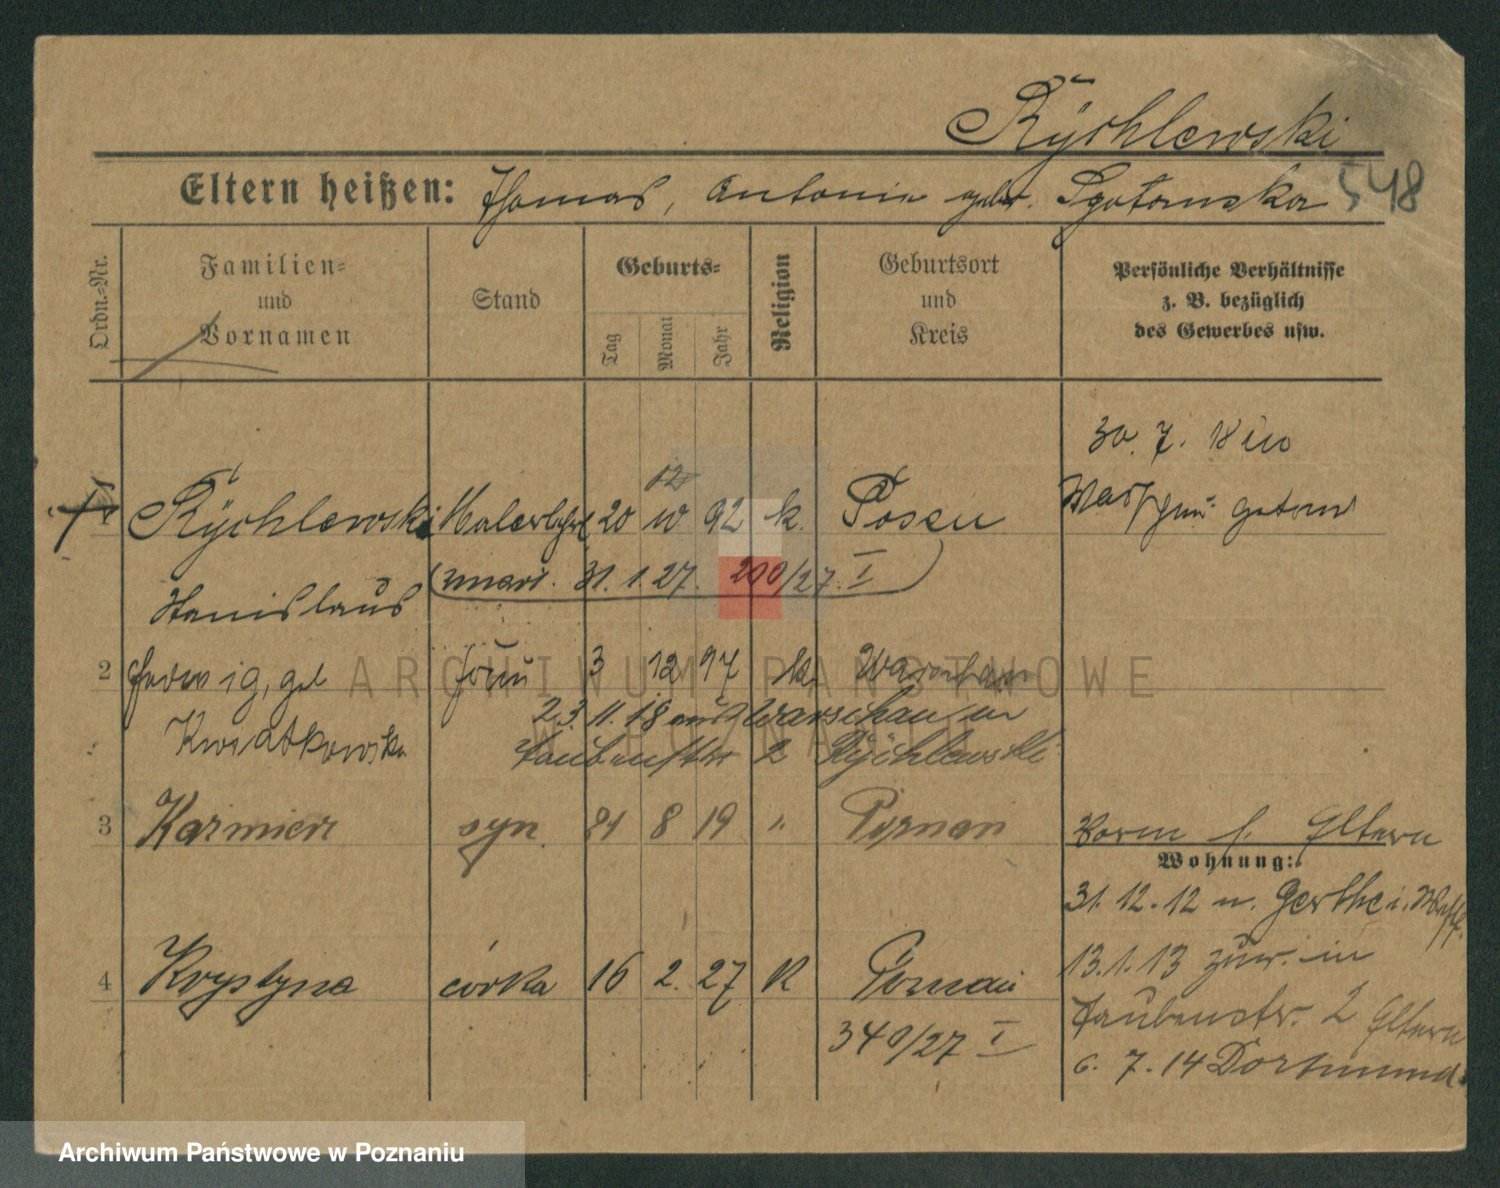 Rychlewski
548
Eltern heißen: Thomas, Antonie geb. Sgotanska
Ordn.-Nr.
Familien-
und
Vornamen
Stand
Geburts-
Tag
Monat
Jahr
Religion
Geburtsort
und
Kreis
Persönliche Verhältnisse
z. B. bezüglich
des Gewerbes usw.
30. 7. 18 in
Warschau getraut
12
1 Rychlewski Malerlehrl 20 10 92 k. Posen
zmarł. 31. 1. 27. 200/27. I
Stanislaus
2 Hedwig, geb Frau 3 12 97 k. Warschau
23. 11. 18 aus Warschau in
Kwiatkowska Taubenstr 2 Rychlewski
3 Kazmierz syn 21 8 19 " Poznan
Vorm b. Eltern
Wohnung:
31. 12. 12 n. Gerthe i. Westf.
4 Krystyna córka 16 2. 27 K Poznań
13. 1. 13 zur. in
Taubenstr. 2 Eltern
340/27 I
6. 7. 14 Dortmund
ARCHIWUM PAŃSTWOWE
W POZNANIU
Archiwum Państwowe w Poznaniu